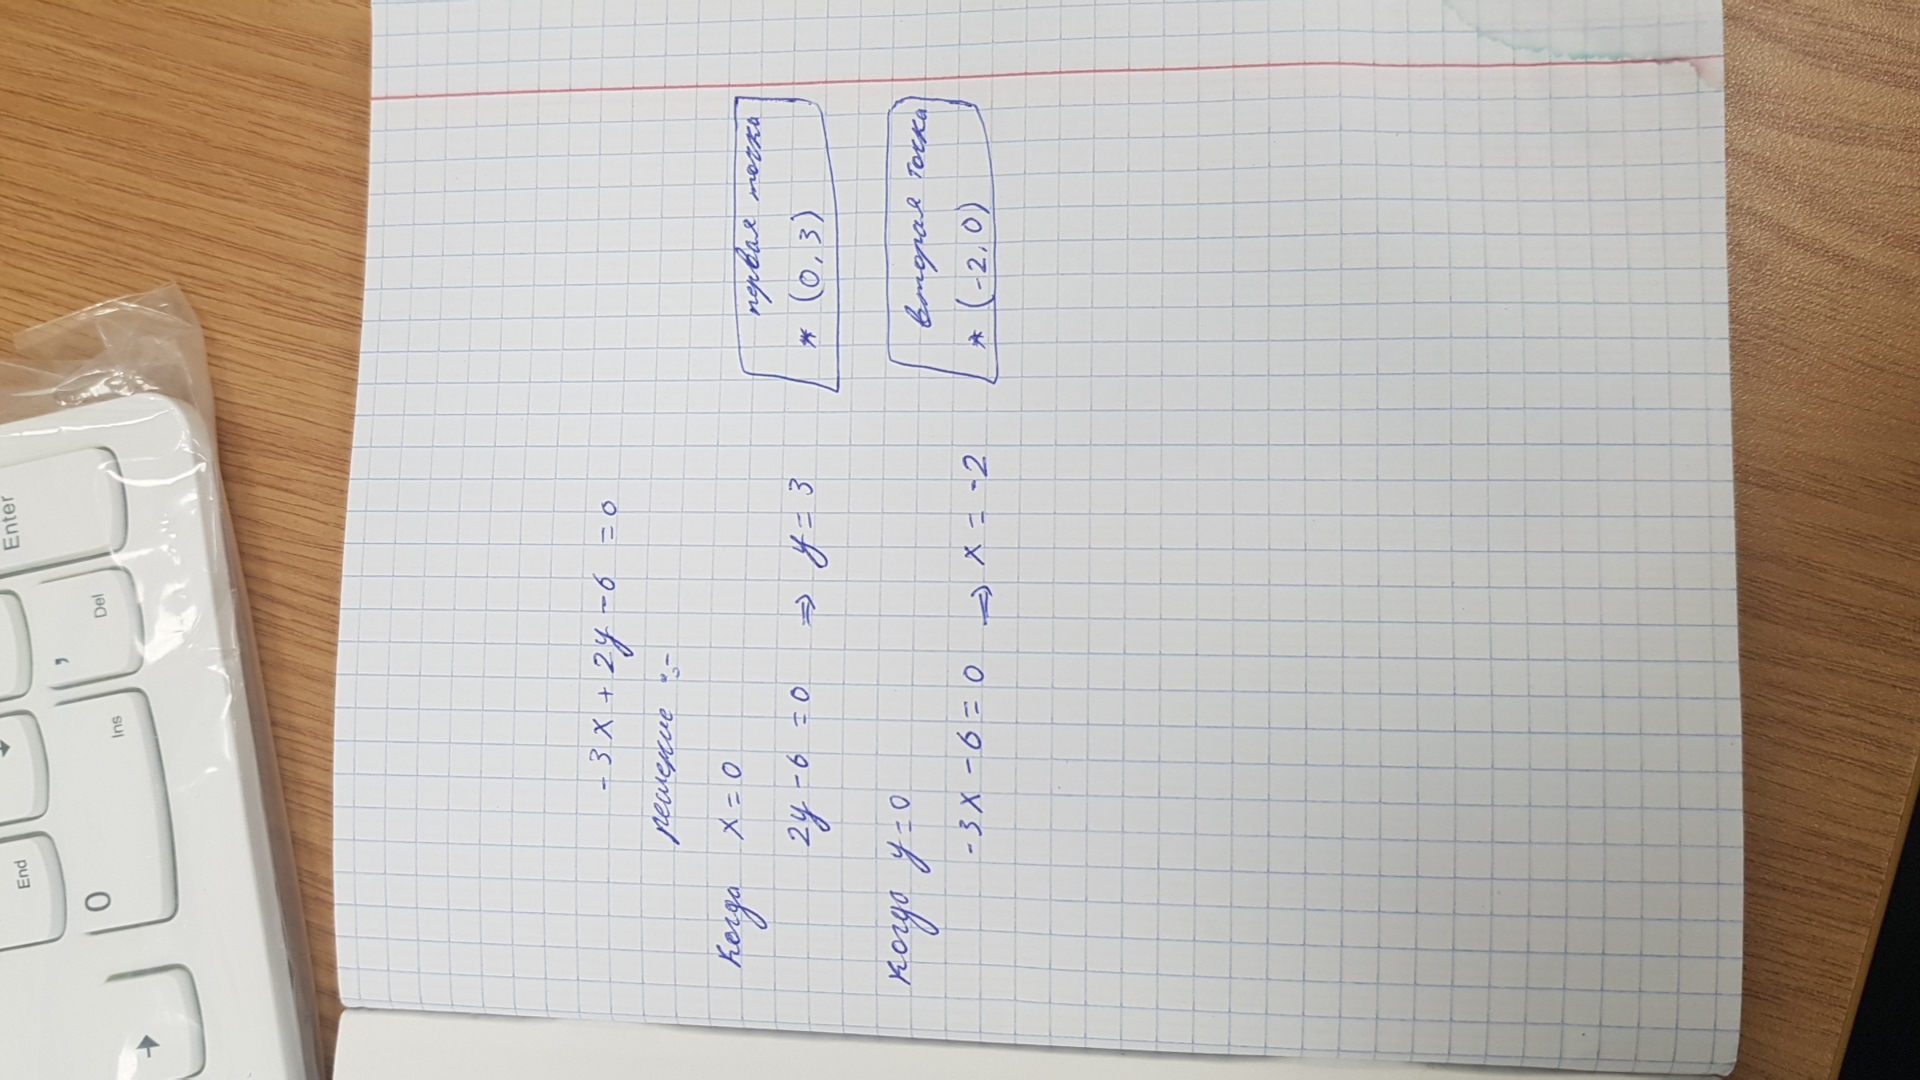 -3x + 2y - 6 = 0
решение :-
Когда x = 0
первая точка
2y - 6 = 0 ⇒ y = 3
* (0, 3)
Когда y = 0
вторая точка
-3x - 6 = 0 ⇒ x = -2
* (-2, 0)
Enter
,
Del
0
Ins
End